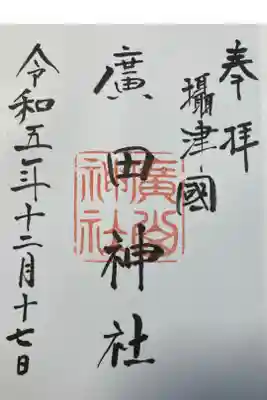 奉拝
攝津國
廣田神社
廣
神社
令和五年十二月十七日